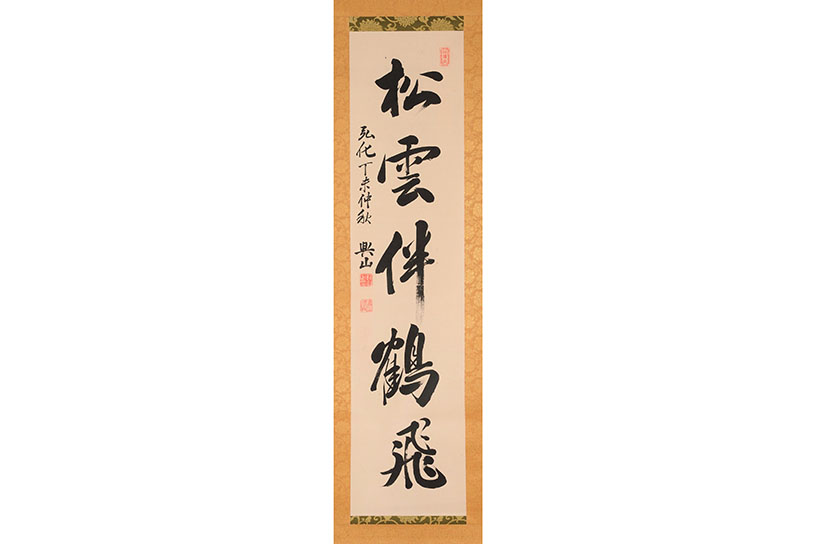 松雲伴鶴飛
弘化丁未仲秋 興山